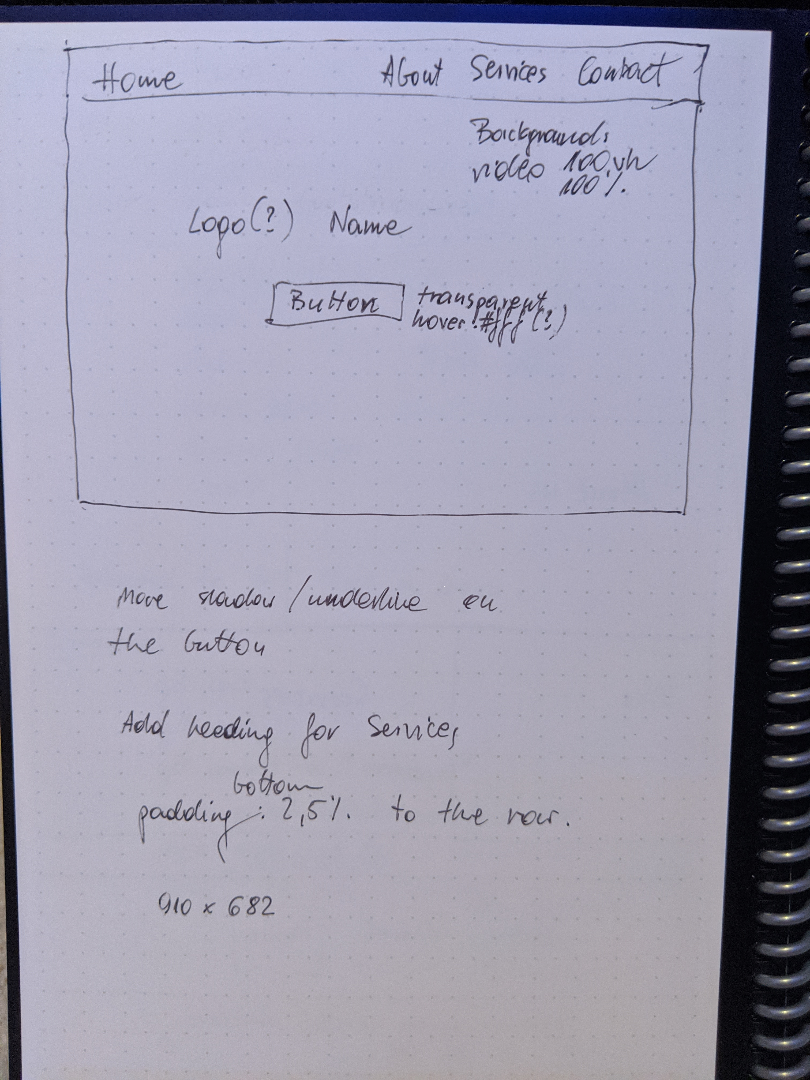 Home About Services Contact
Background:
video 100vh
100%.
Logo(?) Name
Button transparent
hover: #fff (?)
Move shadow/underline on
the button
Add heading for Services
bottom
padding: 2,5%. to the row.
910 x 682